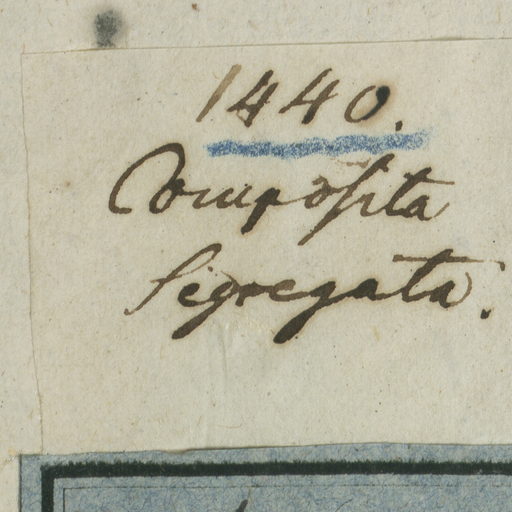 1440.
Composita
Segregata.